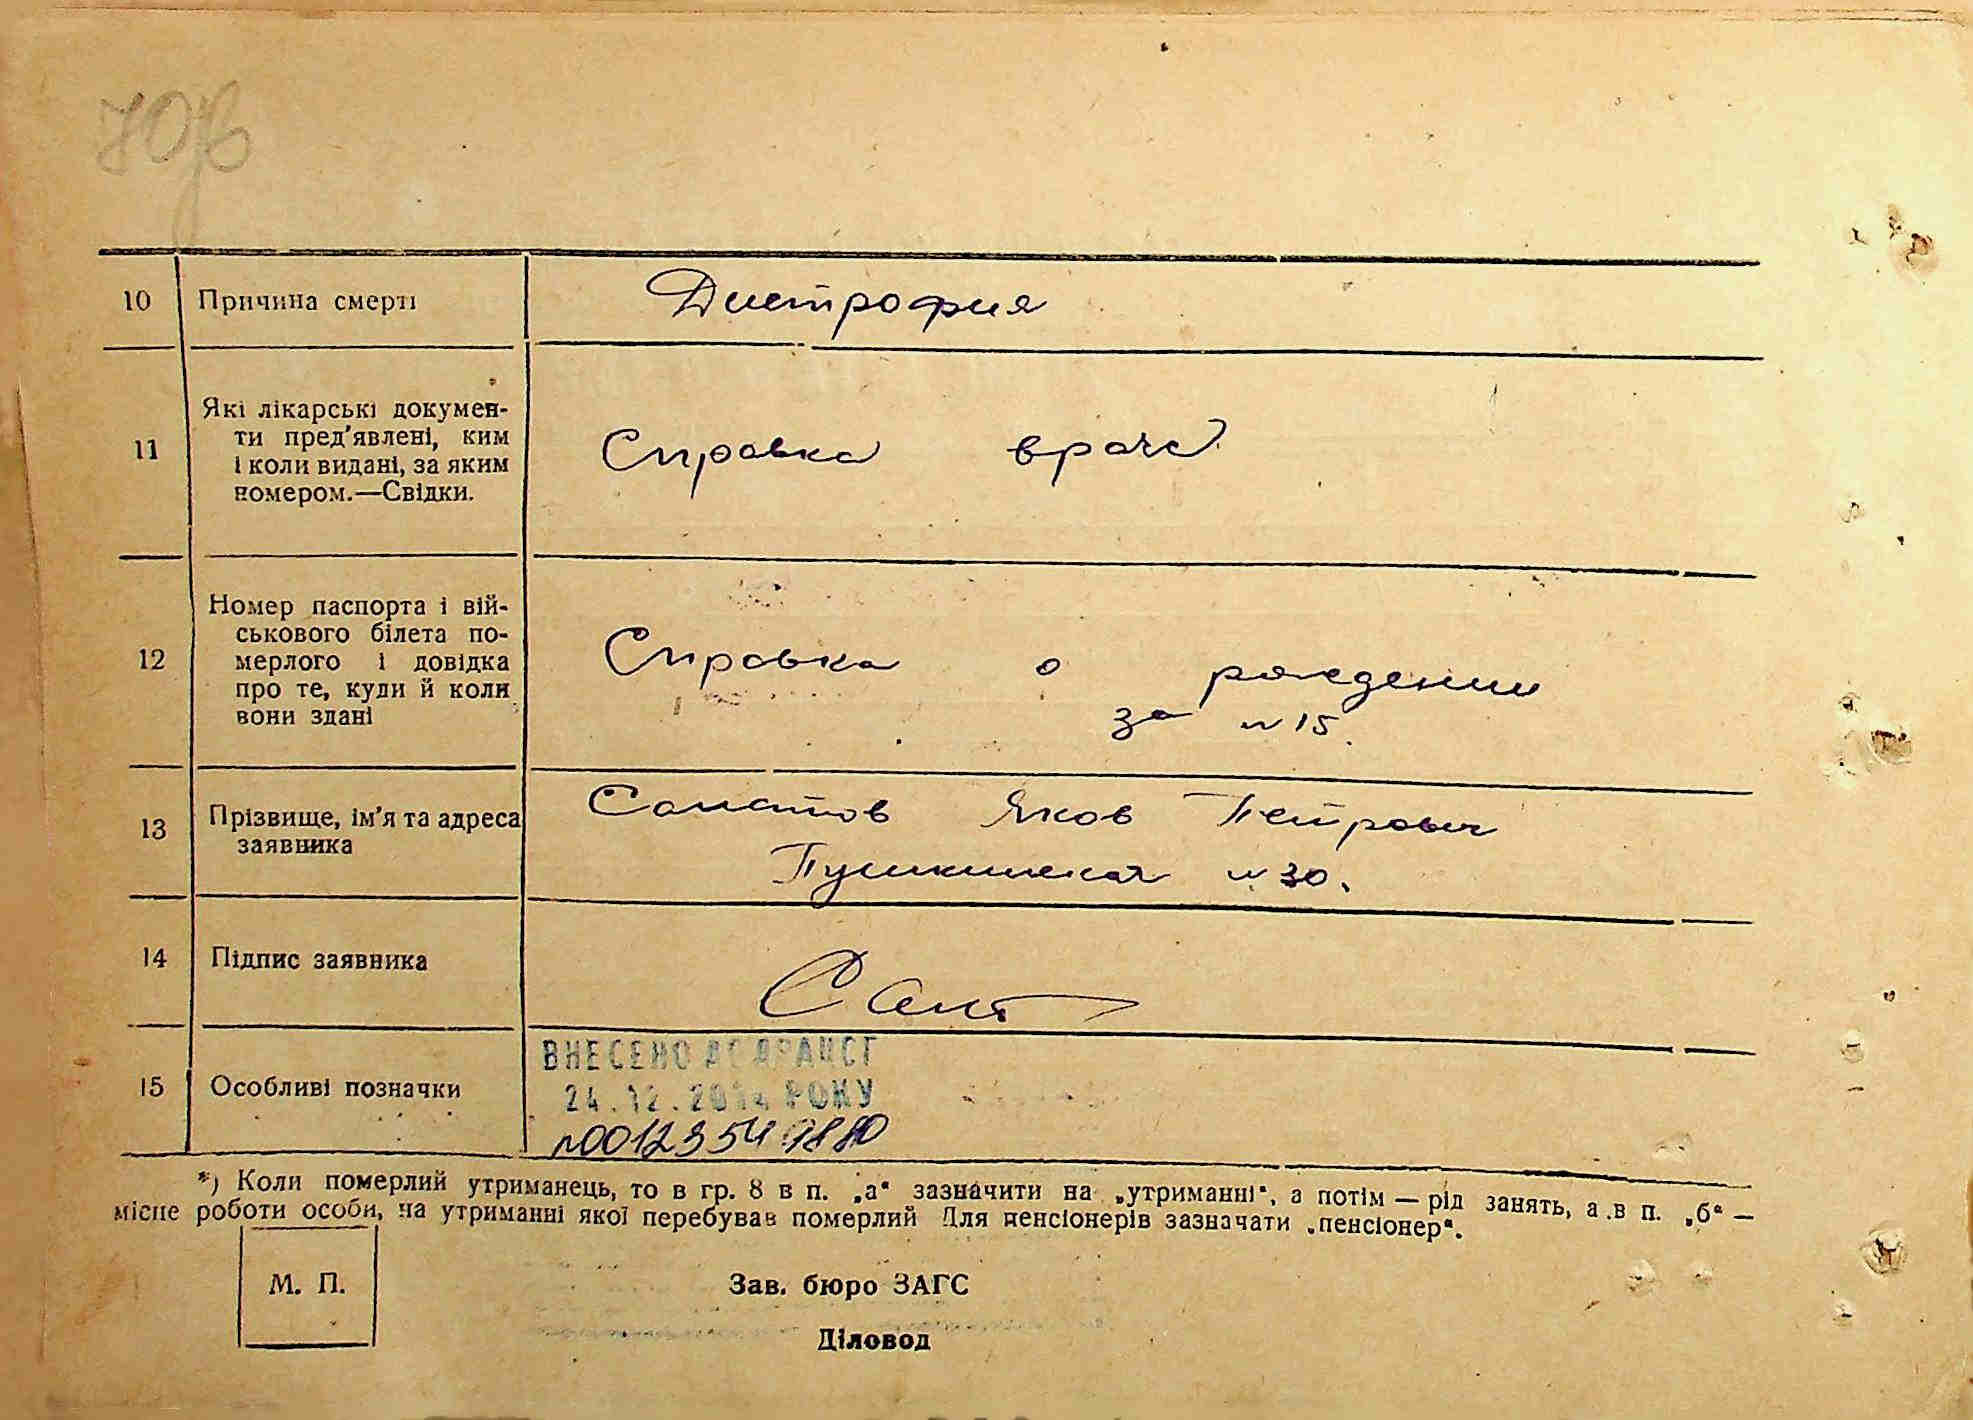 10 Причина смерті Дистрофия
11 Які лікарські докумен-
ти пред'явлені, ким
і коли видані, за яким
номером.—Свідки.
Справка врача
12 Номер паспорта і вій-
ськового білета по-
мерлого і довідка
про те, куди й коли
вони здані
Справка о рождении
за №15.
13 Прізвище, ім'я та адреса
заявника
Яков Петрович
Пушкинская №30.
14 Підпис заявника
15 Особливі позначки
ВНЕСЕНО ДО ДРАЦСГ
24.12.2014 РОКУ
№00123549880
*) Коли померлий утриманець, то в гр. 8 в п. „а“ зазначити на „утриманні“, а потім — рід занять, а в п. „б“ —
місце роботи особи, на утриманні якої перебував померлий Для пенсіонерів зазначати „пенсіонер“.
М. П.
Зав. бюро ЗАГС
Діловод